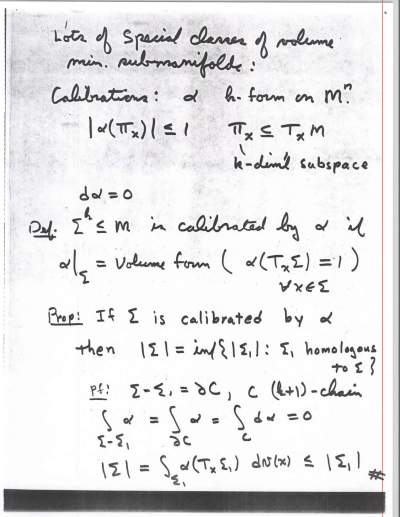 Lots of special classes of volume
min. submanifolds:
Calibrations: α k-form on Mⁿ.
|α(Πₓ)| ≤ 1 Πₓ ≤ TₓM
k-dim'l subspace
dα = 0
Def: Σᵏ ≤ M is calibrated by α if
α|_Σ = volume form ( α(TₓΣ) = 1 )
∀x∈Σ
Prop: If Σ is calibrated by α
then |Σ| = inf{|Σ₁| : Σ₁ homologous
to Σ}
pf: Σ-Σ₁ = ∂C, C (k+1)-chain
∫_{Σ-Σ₁} α = ∫_{∂C} α = ∫_C dα = 0
|Σ| = ∫_{Σ₁} α(TₓΣ₁) dv(x) ≤ |Σ₁| #